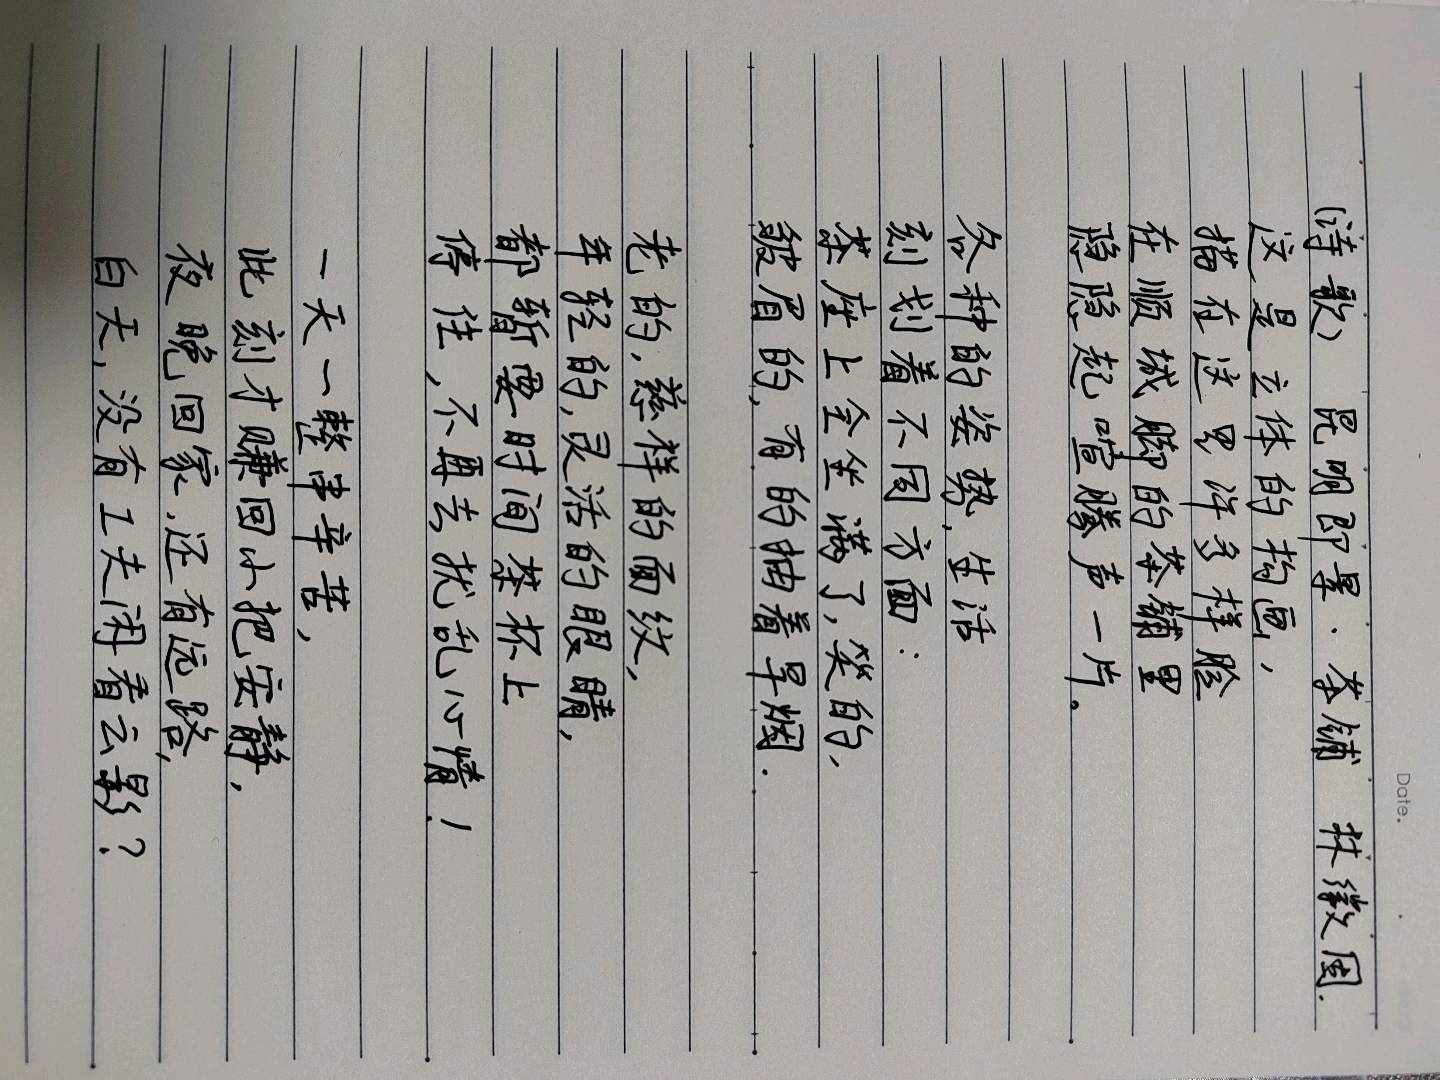 Date.
(诗歌) 昆明即景·茶铺 林徽因.
这是立体的构画,
描在这里许多样脸
在顺城脚的茶铺里
隐隐起喧腾声一片。
各种的姿势,生活
刻划着不同方面:
茶座上全坐满了,笑的,
皱眉的,有的抽着旱烟.
老的,慈祥的面纹,
年轻的,灵活的眼睛,
都暂要时间茶杯上
停住,不再去扰乱心情!
一天一整串辛苦,
此刻才赚回小把安静,
夜晚回家,还有远路,
白天,没有工夫闲看云影?